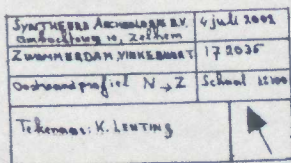 SYNTHEGRA ARCHEOLOGIE B.V. 4 juli 2002
Ambachtsweg 10, Zelhem
ZWAMMERDAM, VINKEBUURT 172035
Oostwandprofiel N → Z Schaal 1:100
Tekenaar: K. LENTING